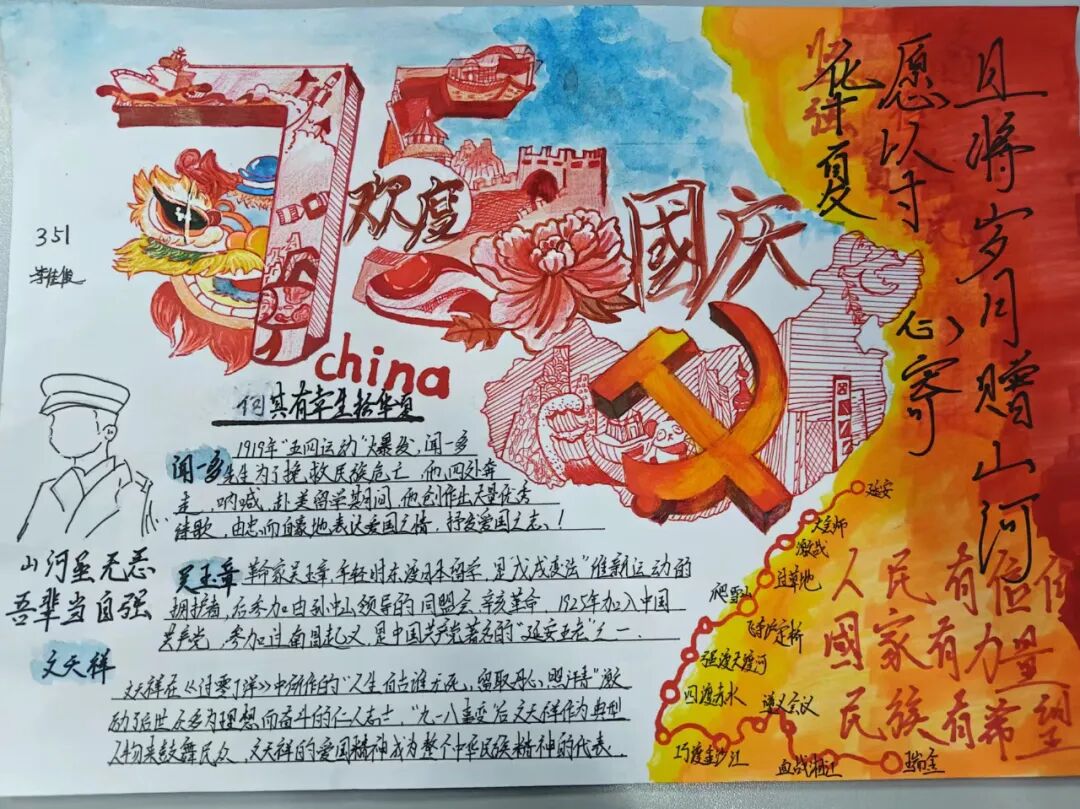 75
欢度
國庆
china
351
何其有幸生于华夏
闻一多
1919年“五四运动”大爆发,闻一多
先生为了挽救民族危亡,他四处奔
走,呐喊,赴美留学期间,他创作出大量优秀
诗歌,由忠而自豪地表达爱国之情,抒发爱国之志!
山河虽无恙
吾辈当自强
吴玉章
革命家吴玉章,年轻时东渡日本留学,是戊戌变法“维新运动的
拥护者,后参加由孙中山领导的同盟会,辛亥革命,1925年加入中国
共产党,参加过南昌起义,是中国共产党著名的“延安五老”之一.
文天祥
文天祥在《过零丁洋》中所作的“人生自古谁无死,留取丹心照汗青”激
励了后世众多为理想而奋斗的仁人志士,“九一八事变”后文天祥作为典型
人物来鼓舞民众,文天祥的爱国精神成为整个中华民族精神的代表.
且将岁月赠山河
愿以寸心寄
华夏
延安
大会师
激战
过草地
爬雪山
飞夺泸定桥
强渡大渡河
四渡赤水
遵义会议
巧渡金沙江
血战湘江
瑞金
人民有信仰
國家有力量
民族有希望